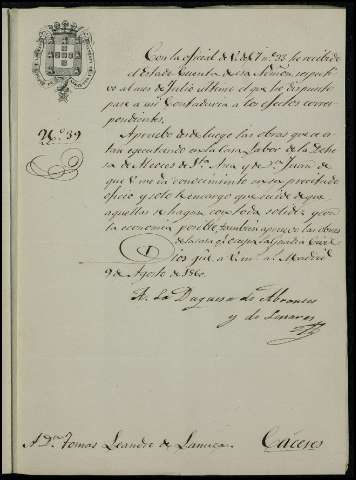 Con la oficial de V. de 7 nº 33 he recibido
el Estado Cuenta de esa Admón. respectivo
al mes de Julio último el que he dispuesto
pase a mi Contaduria a los efectos corres-
pondientes.
Nº 39
Apruebo desde luego las obras que se es-
tan egecutando en la Casa Labor de la Dehe-
sa de Mezcos de Sta. Ana y de Sn. Juan de
que V. me da conocimiento en su precitado
oficio y solo le encargo que cuide de que
aquellas se hagan con toda solidez y con
la economia posible, tambien apruebo las obras
de la casa qe. ocupa la Guardia Civil
Dios gue. a V. m. as. Madrid
9 de Agosto de 1860.
A. La Duquesa de Abrantes
y de Linares
A Dn. Tomas Leandro de Lanuza. Cáceres